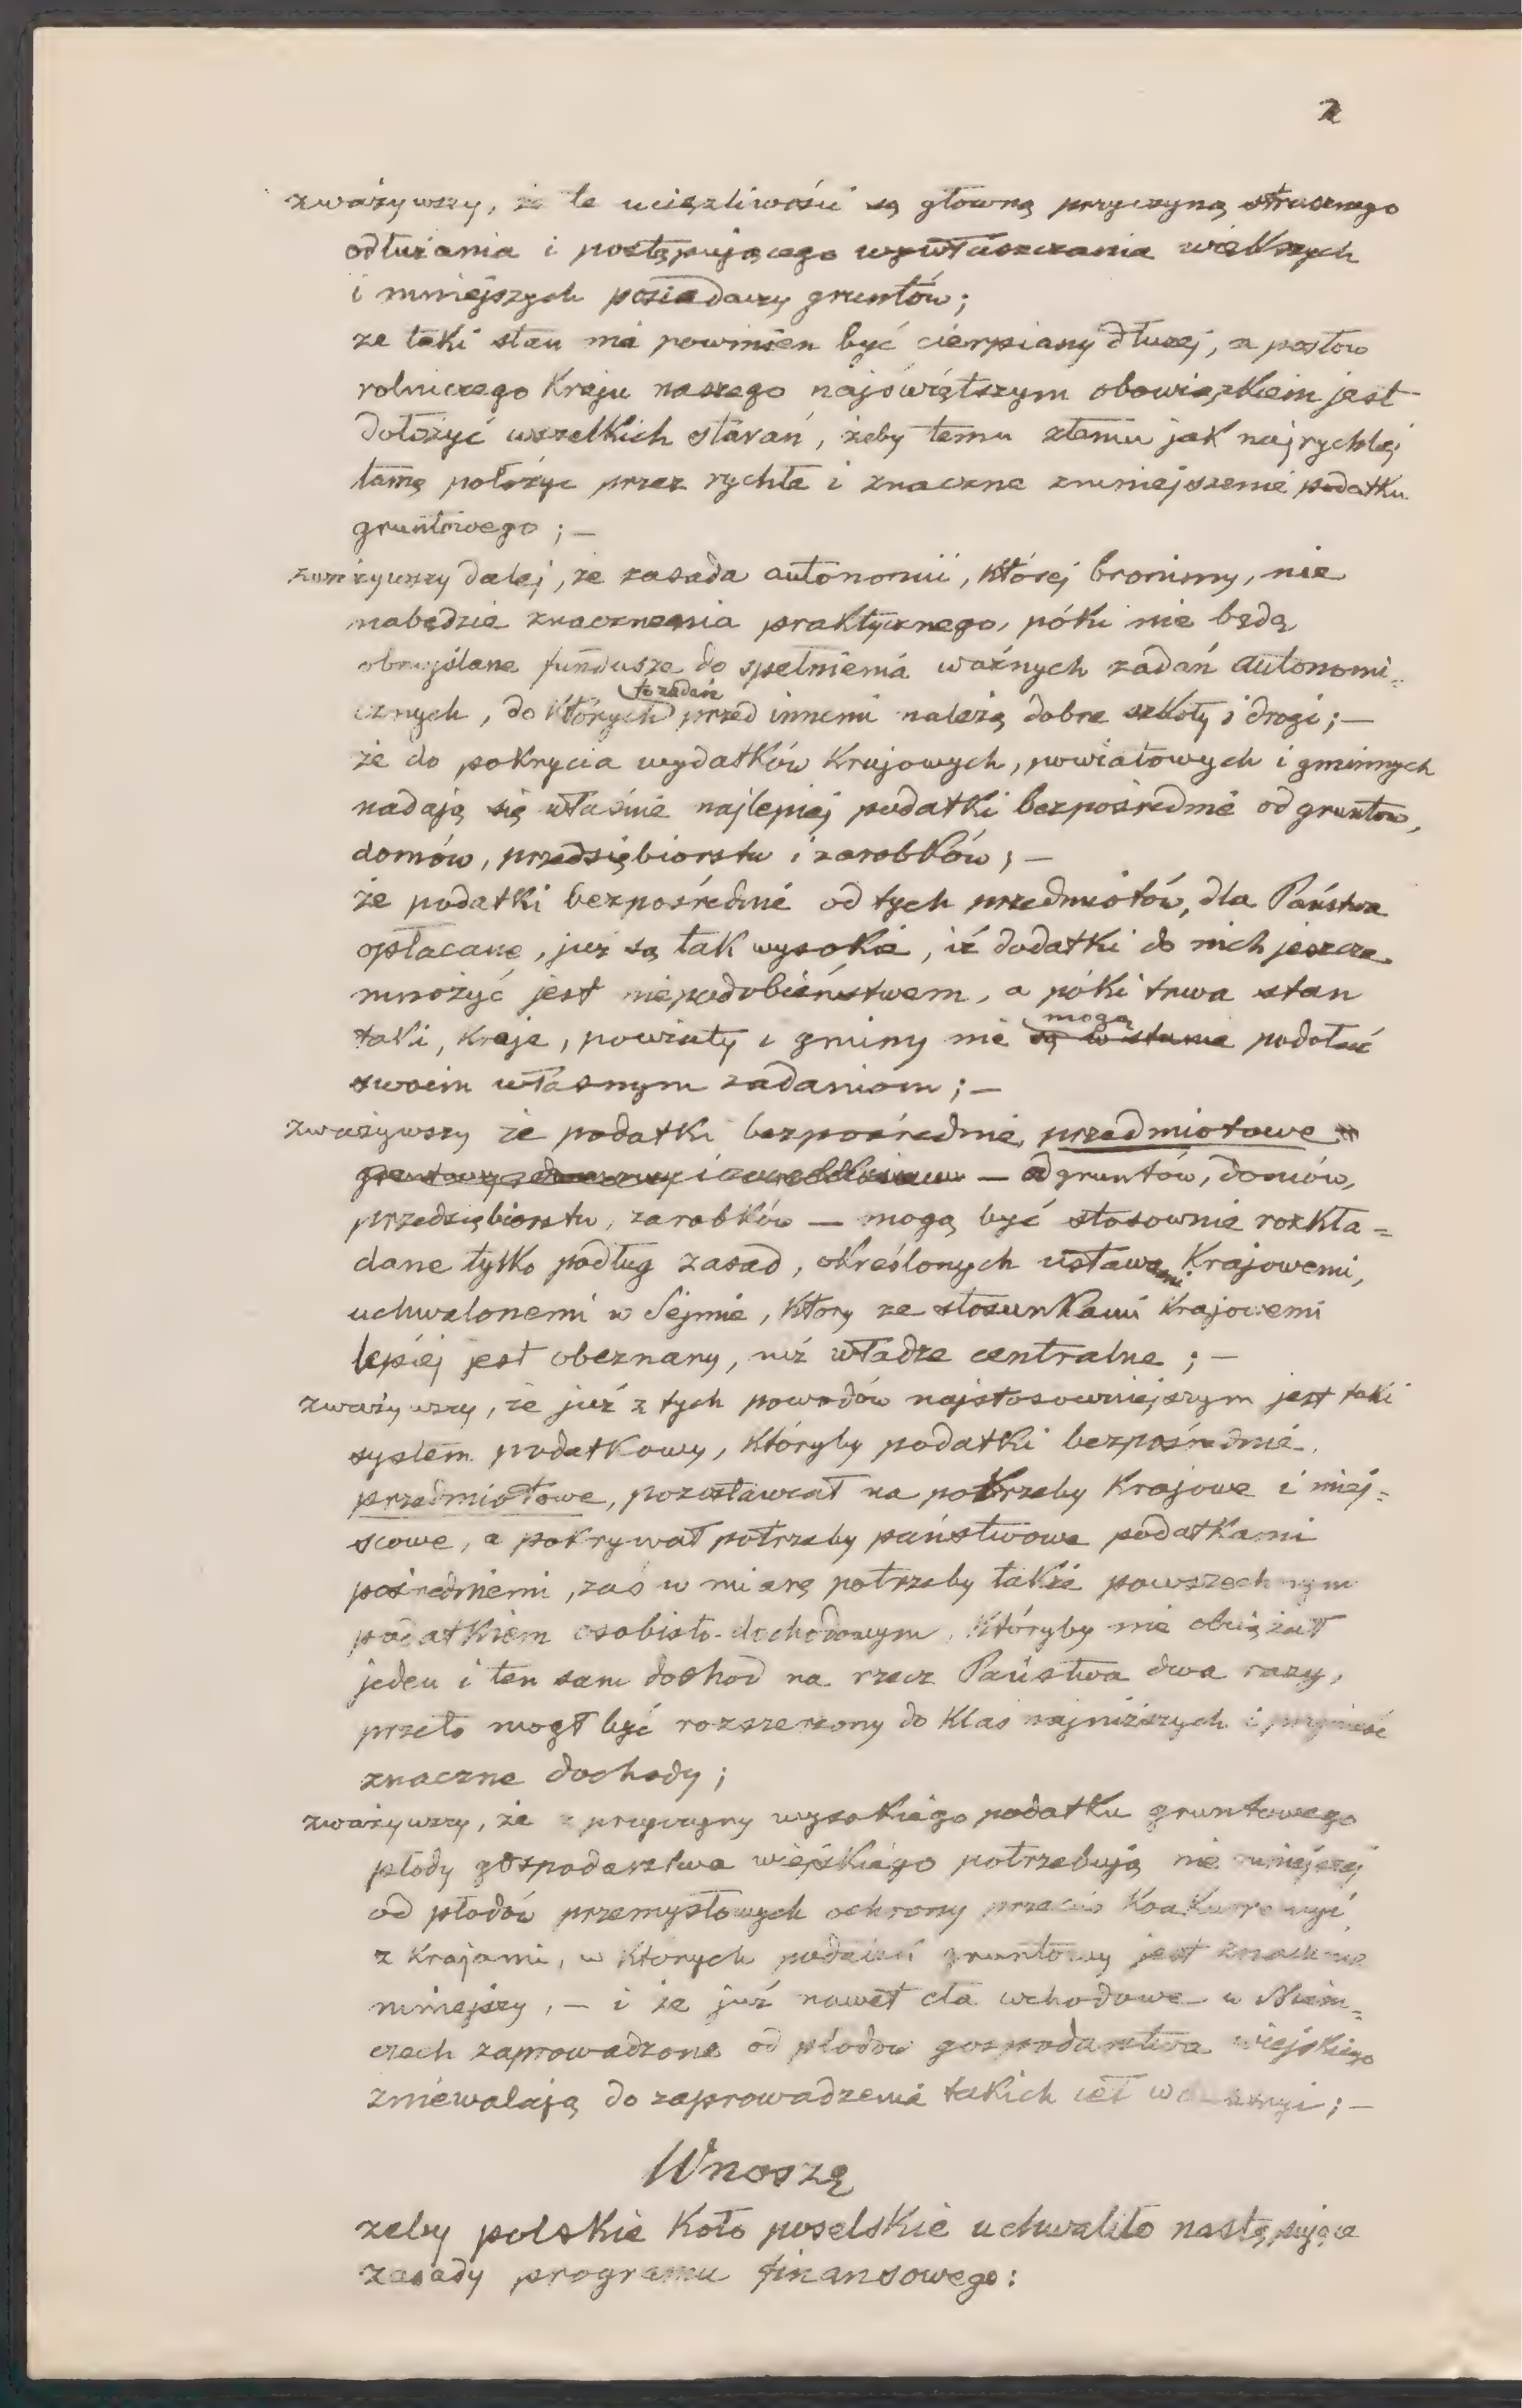 2
zważywszy, że te uciążliwości są główną przyczyną strasznego
odłużania i postępującego wywłaszczania większych
i mniejszych posiadaczy gruntów;
że taki stan nie powinien być cierpiany dłużej, a posłów
rolniczego Kraju naszego najświętszym obowiązkiem jest
dołożyć wszelkich starań, żeby temu złemu jak najrychlej
tamę położyć przez rychłe i znaczne zmniejszenie podatku
gruntowego; —
zważywszy dalej, że zasada autonomii, której bronimy, nie
nabędzie znaczenia praktycznego, póki nie będą
obmyślane fundusze do spełnienia ważnych zadań autonomi=
to zadań
cznych, do których przed innemi należą dobre szkoły i drogi; —
że do pokrycia wydatków Krajowych, powiatowych i gminnych
nadają się właśnie najlepiej podatki bezpośrednie od gruntów,
domów, przedsiębiorstw i zarobków; —
że podatki bezpośrednie od tych przedmiotów, dla Państwa
opłacane, już są tak wysokie, iż dodatki do nich jeszcze
mnożyć jest niepodobieństwem, a póki trwa stan
mogą
taki, Kraje, powiaty i gminy nie są w stanie podołać
swoim własnym zadaniom; —
zważywszy że podatki bezpośrednie, przedmiotowe
— od gruntów, domów,
przedsiębiorstw, zarobków — mogą być stosownie rozkła=
dane tylko podług zasad, określonych ustawami Krajowemi,
uchwalonemi w Sejmie, który ze stosunkami Krajowemi
lepiej jest obeznany, niż władze centralne; —
zważywszy, że już z tych powodów najstosowniejszym jest taki
system podatkowy, któryby podatki bezpośrednie,
przedmiotowe, pozostawiał na potrzeby Krajowe i miej=
scowe, a pokrywał potrzeby państwowe podatkami
pośredniemi, zaś w miarę potrzeby także powszechnym
podatkiem osobisto-dochodowym, któryby nie obciążał
jeden i ten sam dochód na rzecz Państwa dwa razy,
przeto mógł być rozszerzony do Klas najniższych i przynieść
znaczne dochody;
zważywszy, że z przyczyny wysokiego podatku gruntowego
płody gospodarstwa wiejskiego potrzebują nie mniejszej
od płodów przemysłowych ochrony przeciw Konkurencyi
z Krajami, w których podatek gruntowy jest znacznie
mniejszy, — i że już nawet cła wchodowe w Niem=
czech zaprowadzone od płodów gospodarstwa wiejskiego
zniewalają do zaprowadzenia takich ceł w ;—
Wnoszę
żeby polskie Koło poselskie uchwaliło następujące
zasady programu finansowego: